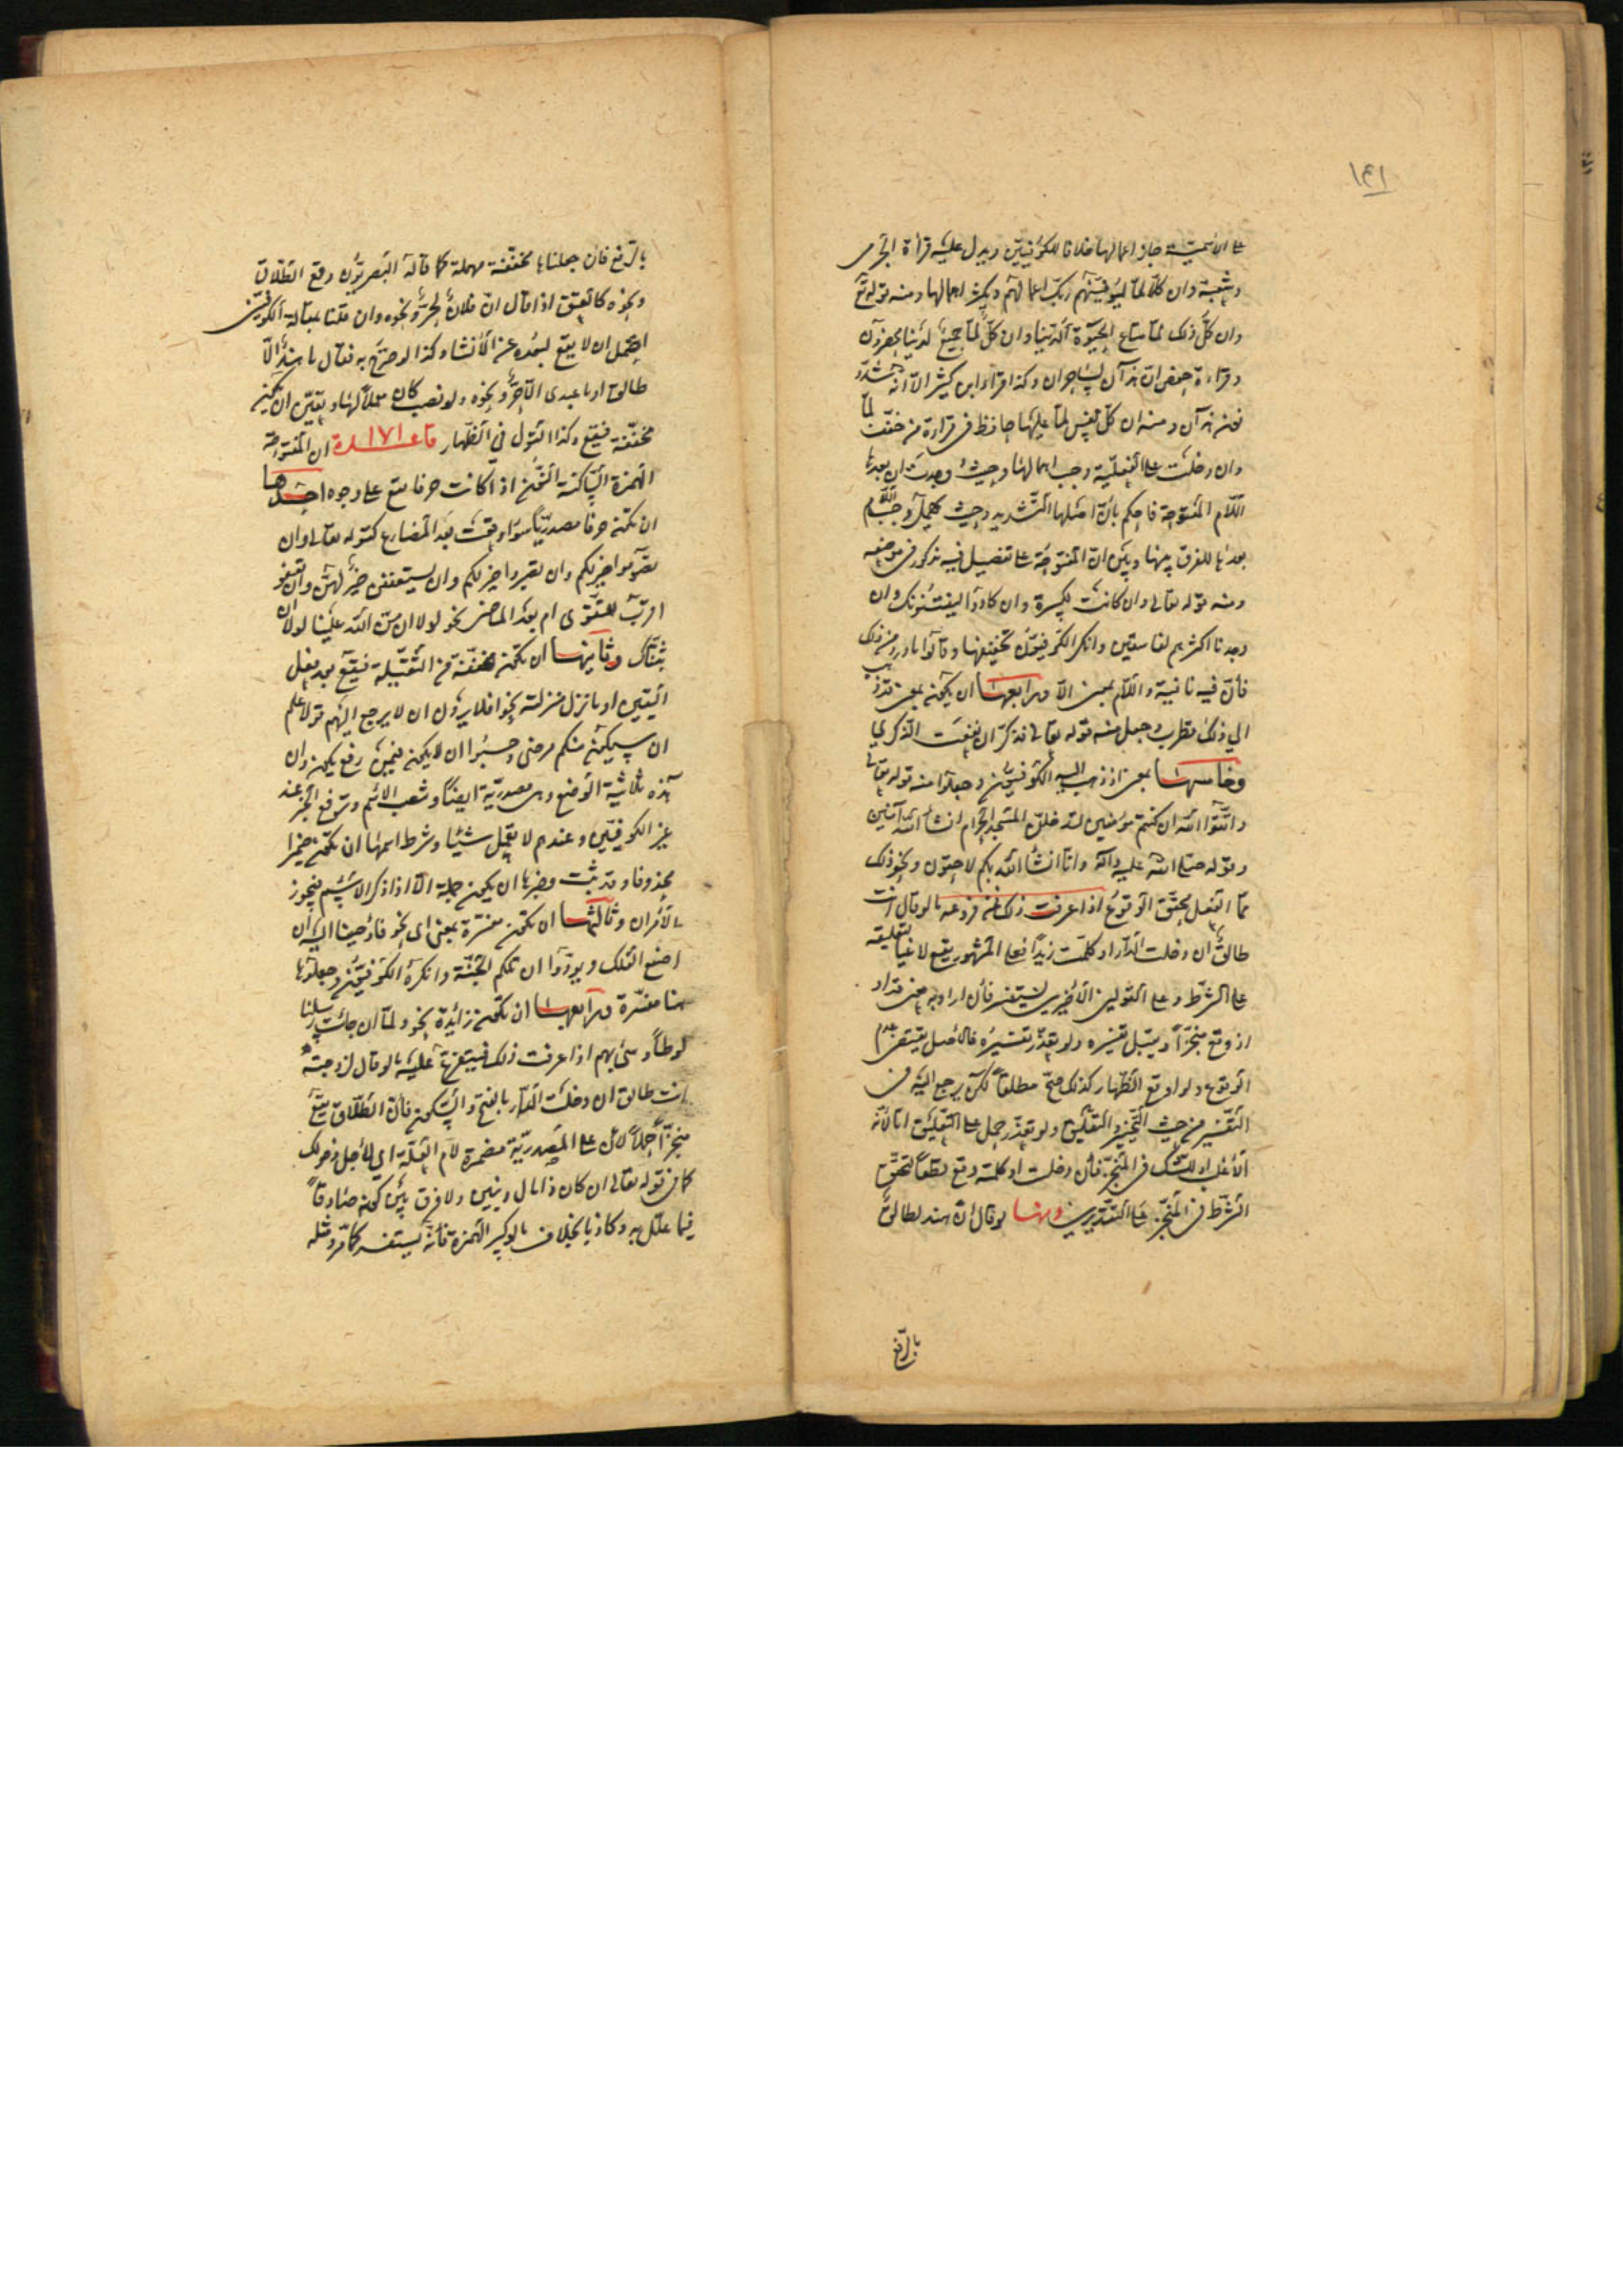 ١٤١
على الأسمية جاز اعمالها خلافا للكوفيين ويدل عليه قرأة الحرمى
وشعبة وان كلا لما ليوفينهم ربك اعمالهم ويكثر اهمالها ومنه قوله تع
وان كل ذلك لما متاع الحيوة الدنيا وان كل لما جميع لدينا محضرون
وقراءة حفص ان هذان لساحران وكذا قرأ ابن كثير الا انه شدد
نون هذان ومنه ان كل نفس لما عليها حافظ فى قراءة من خفف لما
وان دخلت على الفعلية وجب اهمالها وحيث وجدت ان بعدها
اللام المفتوحة فاحكم بان اصلها التشديد وحيث تهمل وجب اللام
بعدها للفرق بينها وبين ان المفتوحة على تفصيل فيه مذكور فى موضعه
ومنه قوله تعالى وان كانت لكبيرة وان كادوا ليفتنونك وان
وجدنا اكثرهم لفاسقين وانكر الكوفيون تخفيفها وقالوا ما ورد من ذلك
فان فيه نافية واللام بمعنى الا ورابعها ان يكون بمعنى قد ذهب
الى ذلك قطرب وجعل منه قوله تعالى فذكر ان نفعت الذكرى
وخامسها بمعنى اذ ذهب اليه الكوفيون وجعلوا منه قوله تعالى
واتقوا الله ان كنتم مؤمنين لتدخلن المسجد الحرام انشاء الله آمنين
وقوله صلى الله عليه وآله وانا انشأ الله بكم لاحقون ونحو ذلك
مما الفعل محقق الوقوع اذا عرفت ذلك فمن فروعه ما لو قال انت
طالق ان دخلت الدار او كلمت زيدا فعلى المشهور يقع لاغيا لتعليقه
على الشرط وعلى القولين الأخيرين يستفسر فان اراد به معنى قد او
اذ وقع منجزا ويقبل تفسيره ولو تعذر تفسيره فالاصل يقتضى عدم
الوقوع ولو اوقع الظهار كذلك صح مطلقا لكن يرجع اليه فى
التفسير من حيث التنجيز والتعليق ولو تعذر حمل على التعليق اما لأنه
الأغلب او للشك فى المنجز فان دخلت او كلمته وقع قطعا لتحقق
الشرط فى المنجز على التقديرين ومنها لو قال ان هند لطالق
بالرفع
بالرفع فان جعلناها مخففة مهملة كما قاله البصريون وقع الطلاق
ونحوه كالعتق اذا قال ان فلان لحر ونحوه وان قلنا بمقالة الكوفيين
احتمل ان لا يقع لبعده عن الأنشاء وكذا لو صرح به فقال ما هند الا
طالق او ما عبدى الا حر ونحوه ولو نصب كان عملا لها ويتعين ان تكون
مخففة فيقع وكذا القول فى الظهار قاعدة ١٧١ ان المفتوحة
الهمزة الساكنة النون اذا كانت حرفا تقع على وجوه احدها
ان تكون حرفا مصدريا سواء وقعت بعد المضارع كقوله تعالى وان
تصوموا خير لكم وان تصبروا خير لكم وان يستعففن خير لهن وان تعفو
اقرب للتقوى ام بعد الماضى نحو لولا ان من الله علينا لولا ان
ثبتناك وثانيها ان تكون مخففة من الثقيلة فيقع بعد فعل
اليقين او ما نزل منزلته نحو افلا يرون ان لا يرجع اليهم قولا علم
ان سيكون منكم مرضى وحسبوا ان لا يكون فيمن رفع يكون وان
هذه ثلاثية الوضع وهى مصدرية ايضا وتنصب الاسم وترفع الخبر عند
غير الكوفيين وعندهم لا تعمل شيئا وشرط اسمها ان تكون ضميرا
محذوفا وقد ثبت وخبرها ان يكون جملة الا اذا ذكر الاسم فيجوز
الأمران وثالثها ان تكون مفسرة بمعنى اى نحو فاوحينا اليه ان
اصنع الفلك ونودوا ان تلكم الجنة وانكره الكوفيون وجعلوها
هنا مفسرة ورابعها ان تكون زائدة نحو ولما ان جائت رسلنا
لوطا سئ بهم اذا عرفت ذلك فيتفرع عليه ما لو قال لزوجته
انت طالق ان دخلت الدار بالفتح والسكون فان الطلاق يقع
منجزا حملا لان على المصدرية مضمرة لام العلة اى لأجل دخولك
كما فى قوله تعالى ان كان ذا مال وبنين ولا فرق بين كونه صادقا
فيما علل به وكاذبا بخلاف ما لو كسر الهمزة فانه يستفسر كما مر ومثله